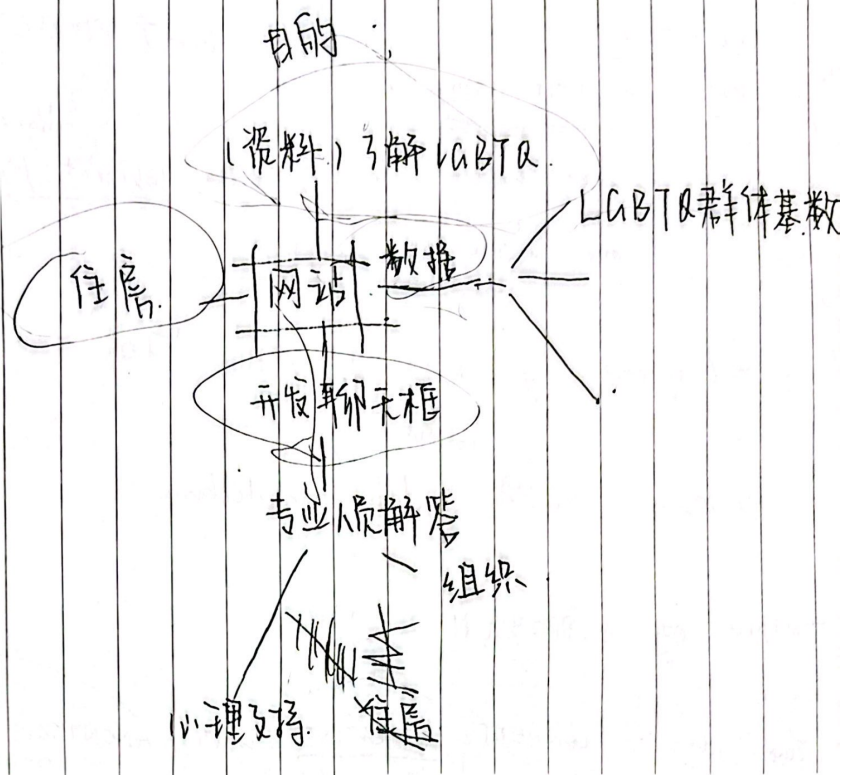 目的:
(资料)了解LGBTQ
LGBTQ群体基数
数据
住房
网站
开发聊天框
专业人员解答
组织
心理支持
住房